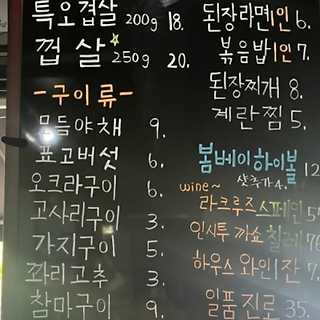 특오겹살 200g 18.
껍살 250g 20.
-구이류-
모듬야채 9.
표고버섯 6.
오크라구이 6.
고사리구이 3.
가지구이 5.
꽈리고추 3.
참마구이 9.
된장라면1인 6.
볶음밥1인 7.
된장찌개 8.
계란찜 5.
봄베이하이볼 12
샷추가4.
wine~
라크루즈스페인 57
인시투 까쇼 칠레 76
하우스 와인1잔 7.
일품진로 35.